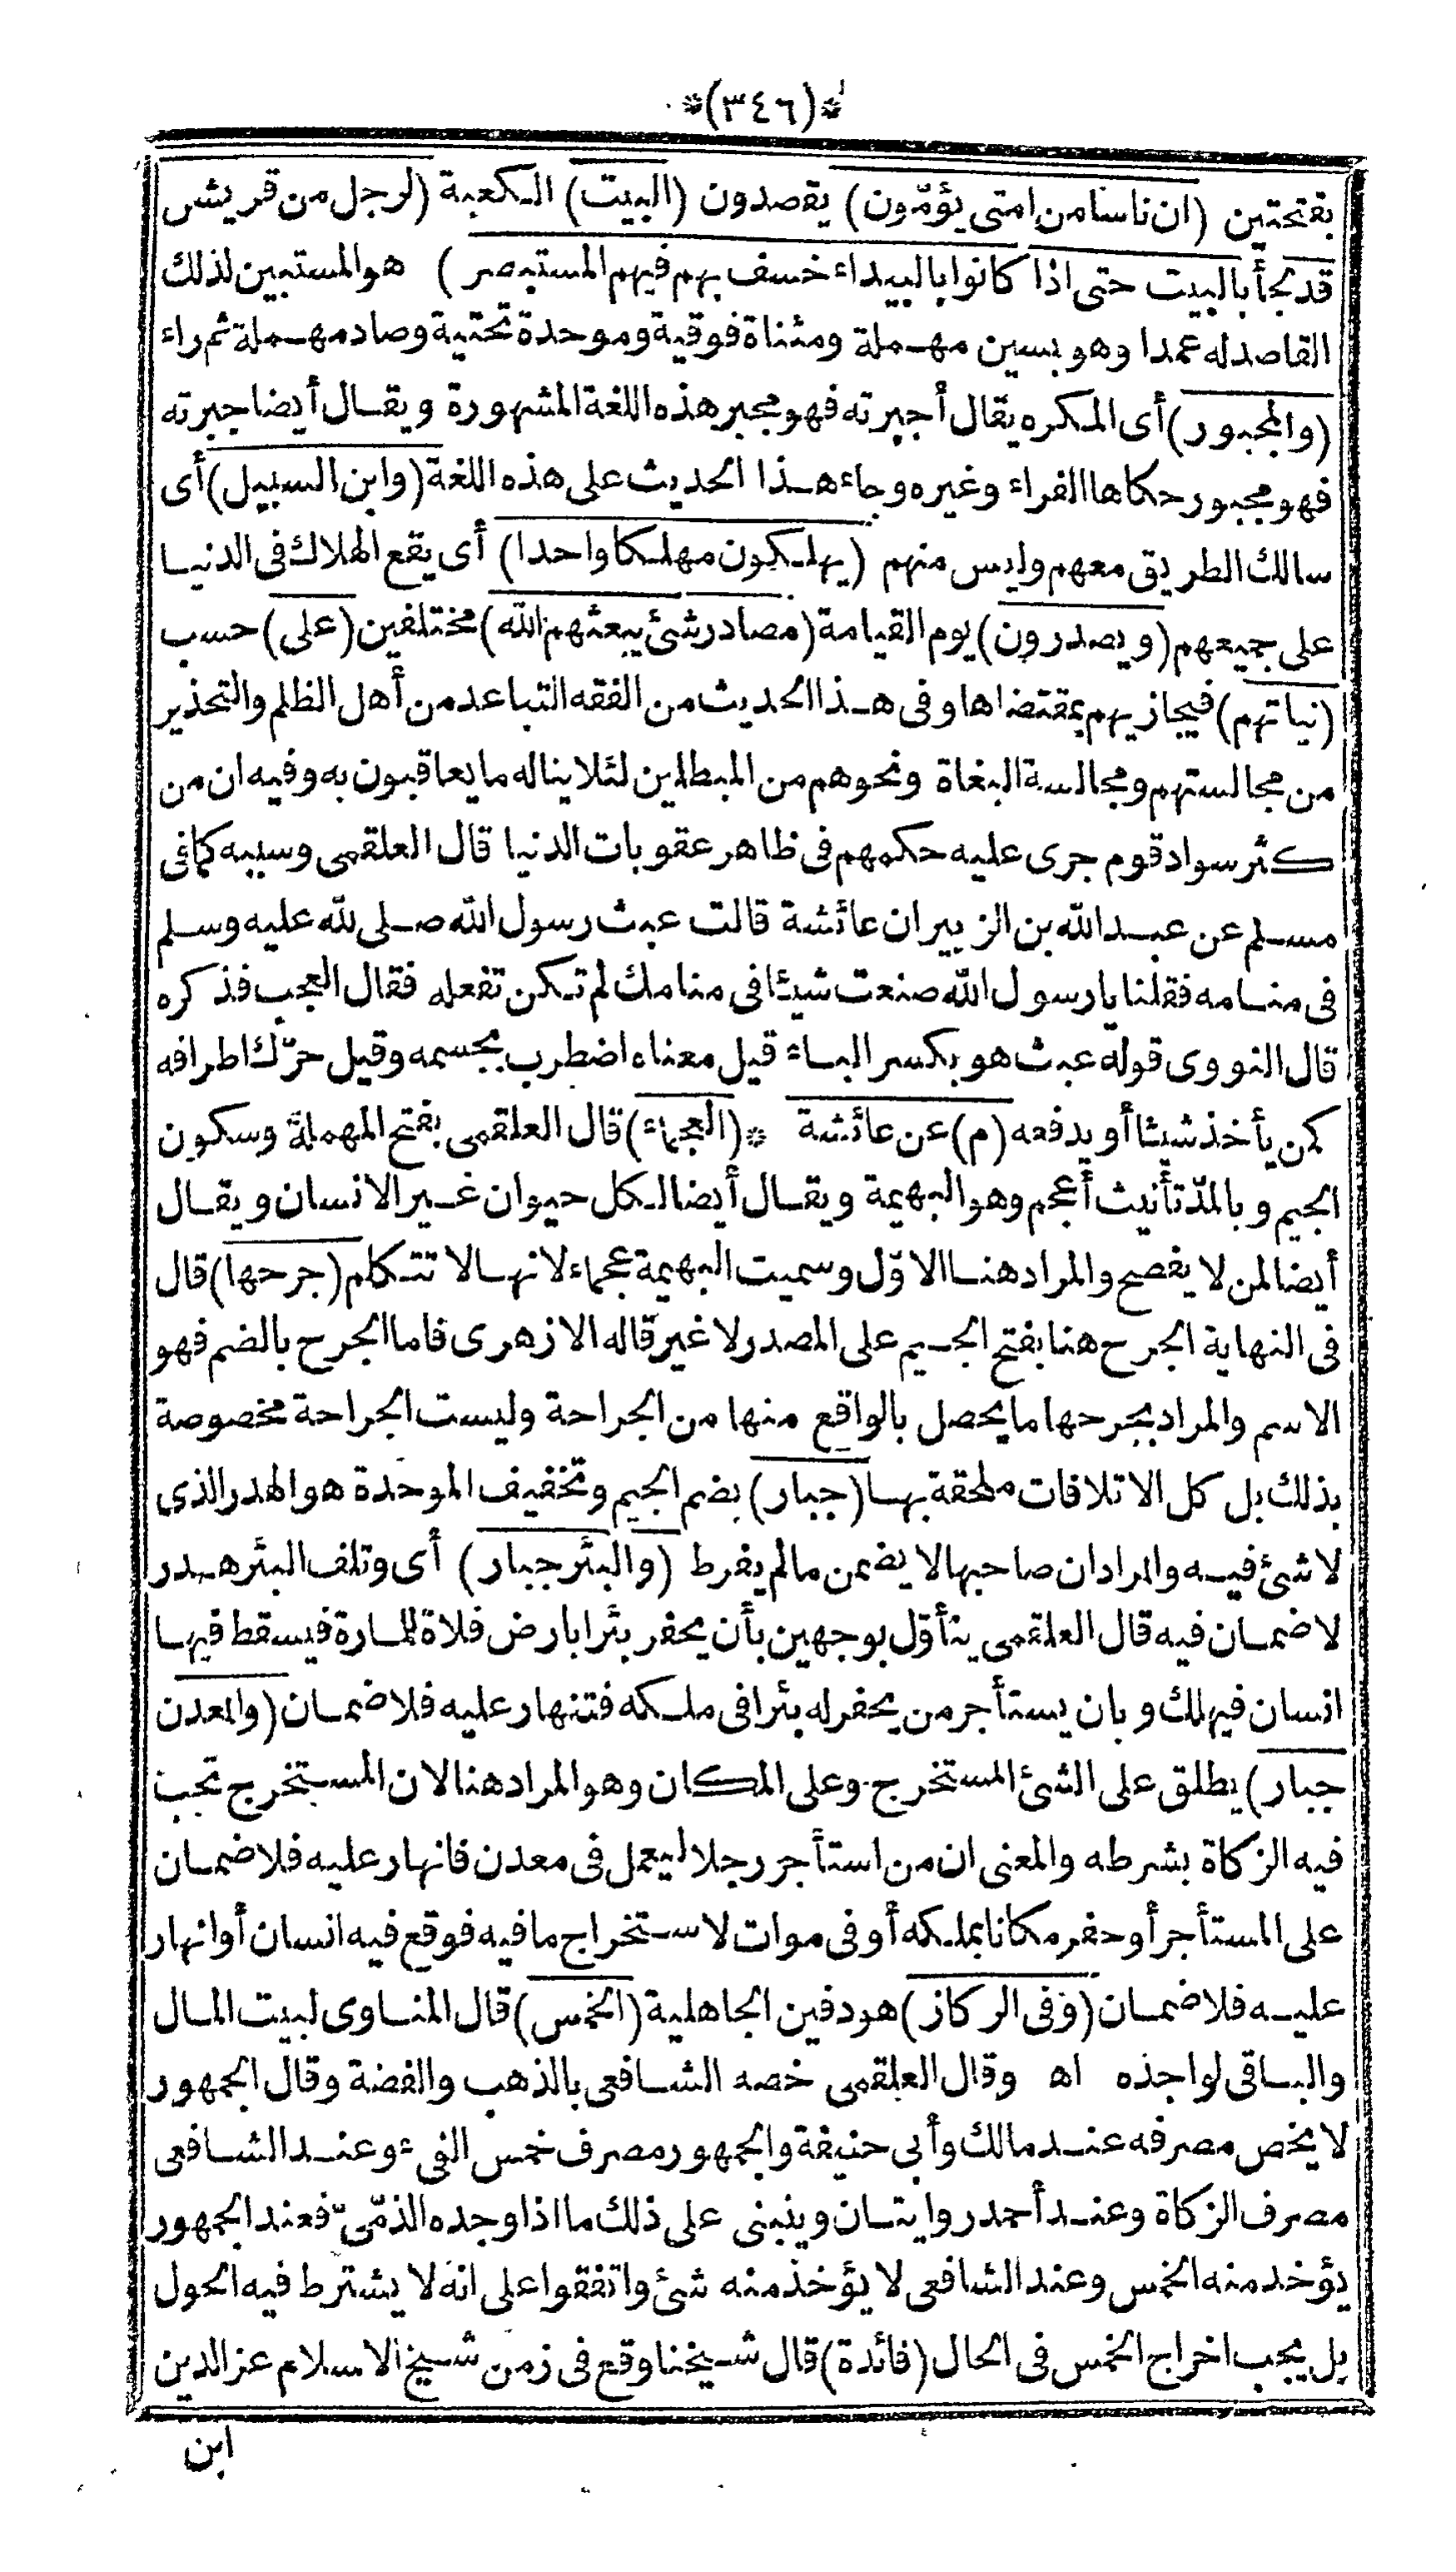 *(٣٤٦)*
بفتحتين (ان ناسا من امتى يؤمّون) يقصدون (البيت) الكعبة (لرجل من قريش
قد لجأ بالبيت حتى اذا كانوا بالبيداء خسف بهم فيهم المستبصر) هو المستبين لذلك
القاصد له عمدا وهو بسين مهملة ومثناة فوقية وموحدة تحتية وصاد مهملة ثم راء
(والمجبور) أى المكره يقال أجبرته فهو مجبر هذه اللغة المشهورة ويقال أيضا جبرته
فهو مجبور حكاها الفراء وغيره وجاء هذا الحديث على هذه اللغة (وابن السبيل) أى
سالك الطريق معهم وليس منهم (يهلكون مهلكا واحدا) أى يقع الهلاك فى الدنيا
على جميعهم (ويصدرون) يوم القيامة (مصادر شئ يبعثهم الله) مختلفين (على) حسب
(نياتهم) فيجازيهم بمقتضاها وفى هذا الحديث من الفقه التباعد من أهل الظلم والتحذير
من مجالستهم ومجالسة البغاة ونحوهم من المبطلين لئلا يناله ما يعاقبون به وفيه ان من
كثر سواد قوم جرى عليه حكمهم فى ظاهر عقوبات الدنيا قال العلقمى وسببه كما فى
مسلم عن عبد الله بن الزبير ان عائشة قالت عبث رسول الله صلى لله عليه وسلم
فى منامه فقلنا يا رسول الله صنعت شيئا فى منامك لم تكن تفعله فقال العجب فذكره
قال النووى قوله عبث هو بكسر الباء قيل معناه اضطرب بجسمه وقيل حرّك اطرافه
كمن يأخذ شيئا أو يدفعه (م) عن عائشة * (العجماء) قال العلقمى بفتح المهملة وسكون
الجيم وبالمدّ تأنيث أعجم وهو البهيمة ويقال أيضا لكل حيوان غير الانسان ويقال
أيضا لمن لا يفصح والمراد هنا الاوّل وسميت البهيمة عجماء لانها لا تتكلم (جرحها) قال
فى النهاية الجرح هنا بفتح الجيم على المصدر لا غير قاله الازهرى فاما الجرح بالضم فهو
الاسم والمراد بجرحها ما يحصل بالواقع منها من الجراحة وليست الجراحة مخصوصة
بذلك بل كل الاتلافات ملحقة بها (جبار) بضم الجيم وتخفيف الموحدة هو الهدر الذى
لا شئ فيه والمراد ان صاحبها لا يضمن ما لم يفرط (والبئر جبار) أى وتلف البئر هدر
لا ضمان فيه قال العلقمى يتأوّل بوجهين بأن يحفر بئرا بارض فلاة للمارة فيسقط فيها
انسان فيهلك وبان يستأجر من يحفر له بئرا فى ملكه فتنهار عليه فلا ضمان (والمعدن
جبار) يطلق على الشئ المستخرج وعلى المكان وهو المراد هنا لان المستخرج تجب
فيه الزكاة بشرطه والمعنى ان من استأجر رجلا ليعمل فى معدن فانهار عليه فلا ضمان
على المستأجر أو حفر مكانا بملكه أو فى موات لاستخراج ما فيه فوقع فيه انسان أو انهار
عليه فلا ضمان (وفى الركاز) هو دفين الجاهلية (الخمس) قال المناوى لبيت المال
والباقى لواجده اه وقال العلقمى خصه الشافعى بالذهب والفضة وقال الجمهور
لا يخص مصرفه عند مالك وأبى حنيفة والجمهور مصرف خمس الفىء وعند الشافعى
مصرف الزكاة وعند أحمد روايتان وينبنى على ذلك ما اذا وجده الذمّىّ فعند الجمهور
يؤخد منه الخمس وعند الشافعى لا يؤخذ منه شئ واتفقوا على انه لا يشترط فيه الحول
بل يجب اخراج الخمس فى الحال (فائدة) قال شيخنا وقع فى زمن شيخ الاسلام عز الدين
ابن